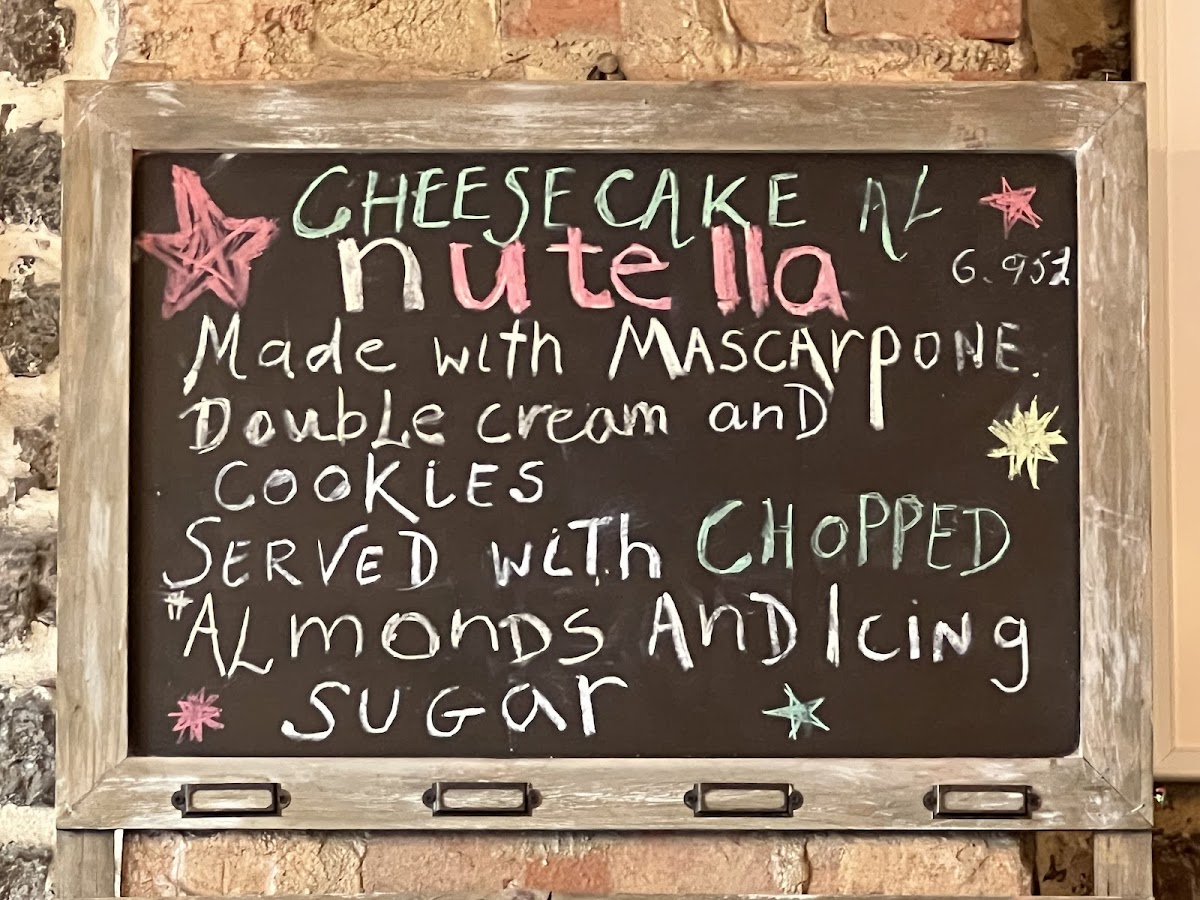 CHEESECAKE AL
nutella
6.95£
Made with MASCArpONE.
DoubLe cream anD
COOKiES
SERVED wiTh CHOPPED
"ALmonDS AnD Icing
SUGar